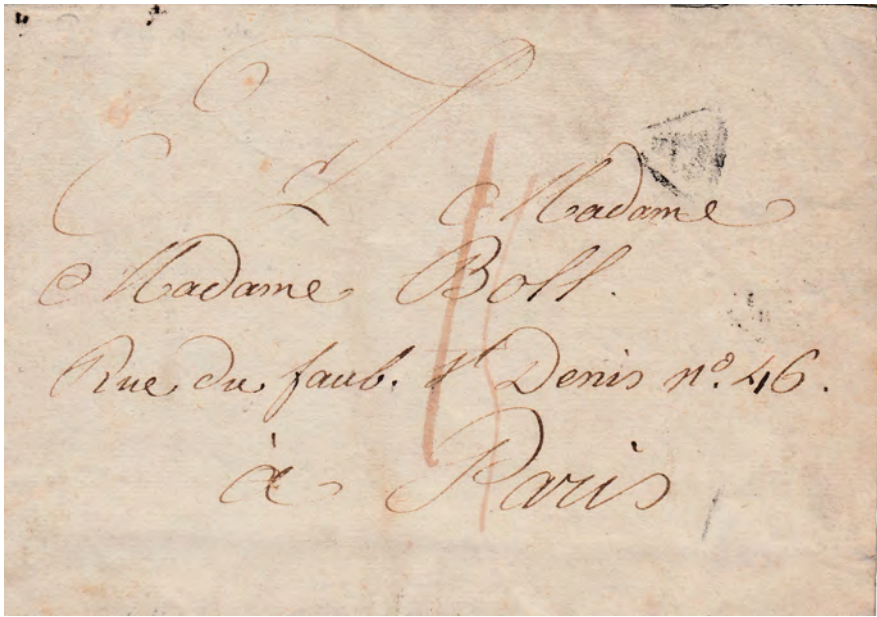 A Madame
Madame Boll.
Rue du faub. St Denis nº. 46.
à Paris